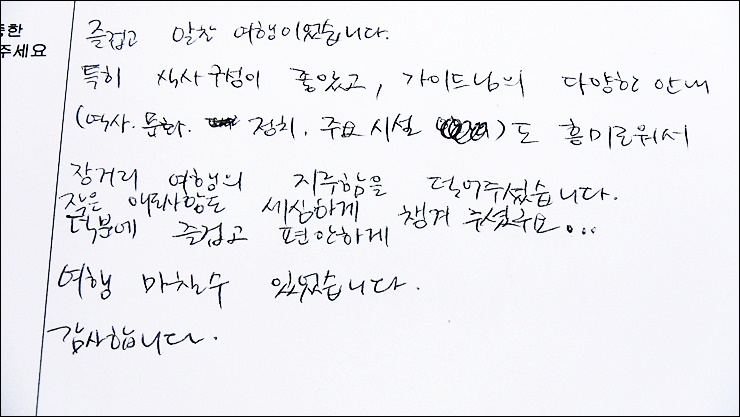 한
주세요
즐겁고 알찬 여행이었습니다.
특히 식사 구성이 좋았고, 가이드님의 다양한 안내
(역사. 문화. 정치, 주요 시설 )도 흥미로워서
장거리 여행의 지루함을 덜어주셨습니다.
작은 애로사항도 세심하게 챙겨 주셨구요...
덕분에 즐겁고 편안하게
여행 마칠수 있었습니다.
감사합니다.